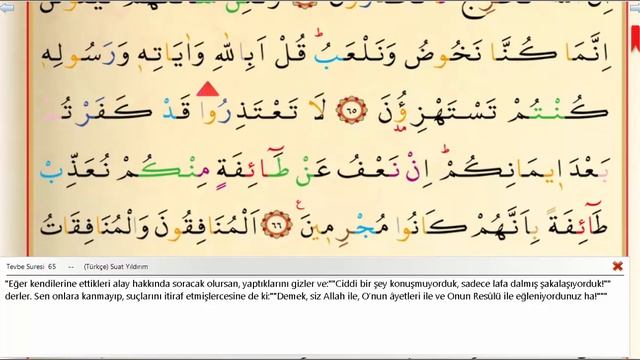 اِنَّمَا كُنَّا نَخُوضُ وَنَلْعَبُ قُلْ اَبِاللّٰهِ وَاٰيَاتِهِ وَرَسُولِهِ
كُنْتُمْ تَسْتَهْزِؤُنَ ٦٥ لَا تَعْتَذِرُوا قَدْ كَفَرْتُمْ
بَعْدَ اِيمَانِكُمْ اِنْ نَعْفُ عَنْ طَٓائِفَةٍ مِنْكُمْ نُعَذِّبْ
طَٓائِفَةً بِاَنَّهُمْ كَانُوا مُجْرِمِينَ ٦٦ اَلْمُنَافِقُونَ وَالْمُنَافِقَاتُ
Tevbe Suresi 65 -- (Türkçe) Suat Yıldırım
"Eğer kendilerine ettikleri alay hakkında soracak olursan, yaptıklarını gizler ve:""Ciddi bir şey konuşmuyorduk, sadece lafa dalmış şakalaşıyorduk!""
derler. Sen onlara kanmayıp, suçlarını itiraf etmişlercesine de ki:""Demek, siz Allah ile, O'nun âyetleri ile ve Onun Resûlü ile eğleniyordunuz ha!"""